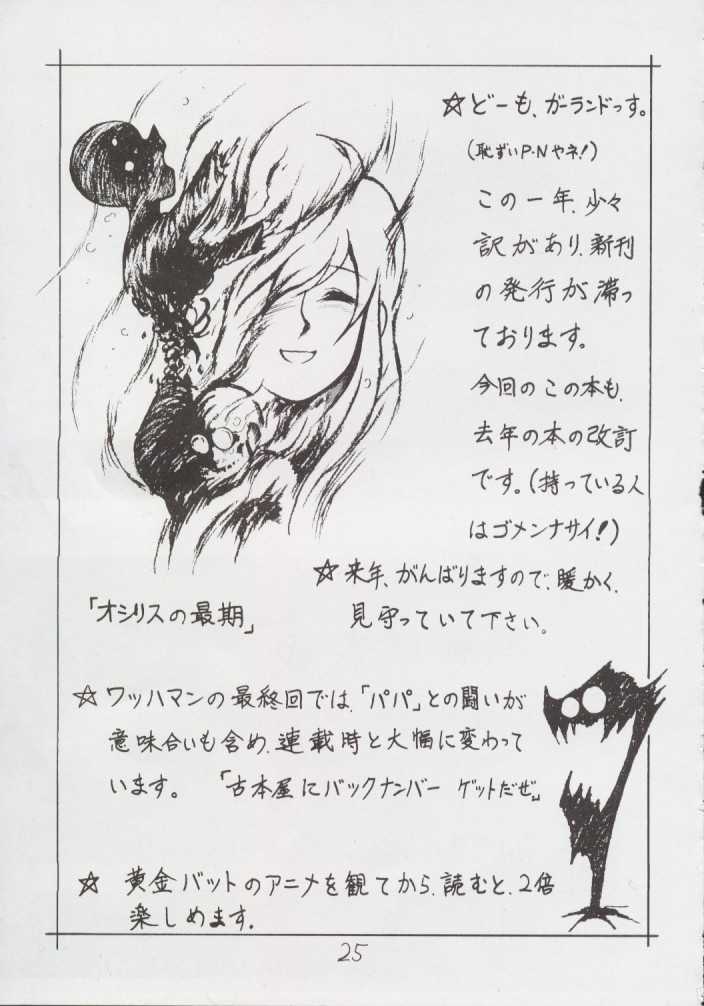 ☆どーも、ガーランドっす。
(恥ずいP・Nやネ!)
この一年、少々
訳があり、新刊
の発行が滞っ
ております。
今回のこの本も、
去年の本の改訂
です。(持っている人
はゴメンナサイ!)
☆来年、がんばりますので、暖かく、
見守っていて下さい。
「オシリスの最期」
☆ワッハマンの最終回では、「パパ」との闘いが
意味合いも含め、連載時と大幅に変わって
います。 「古本屋にバックナンバー ゲットだぜ」
☆ 黄金バットのアニメを観てから、読むと、2倍
楽しめます。
25